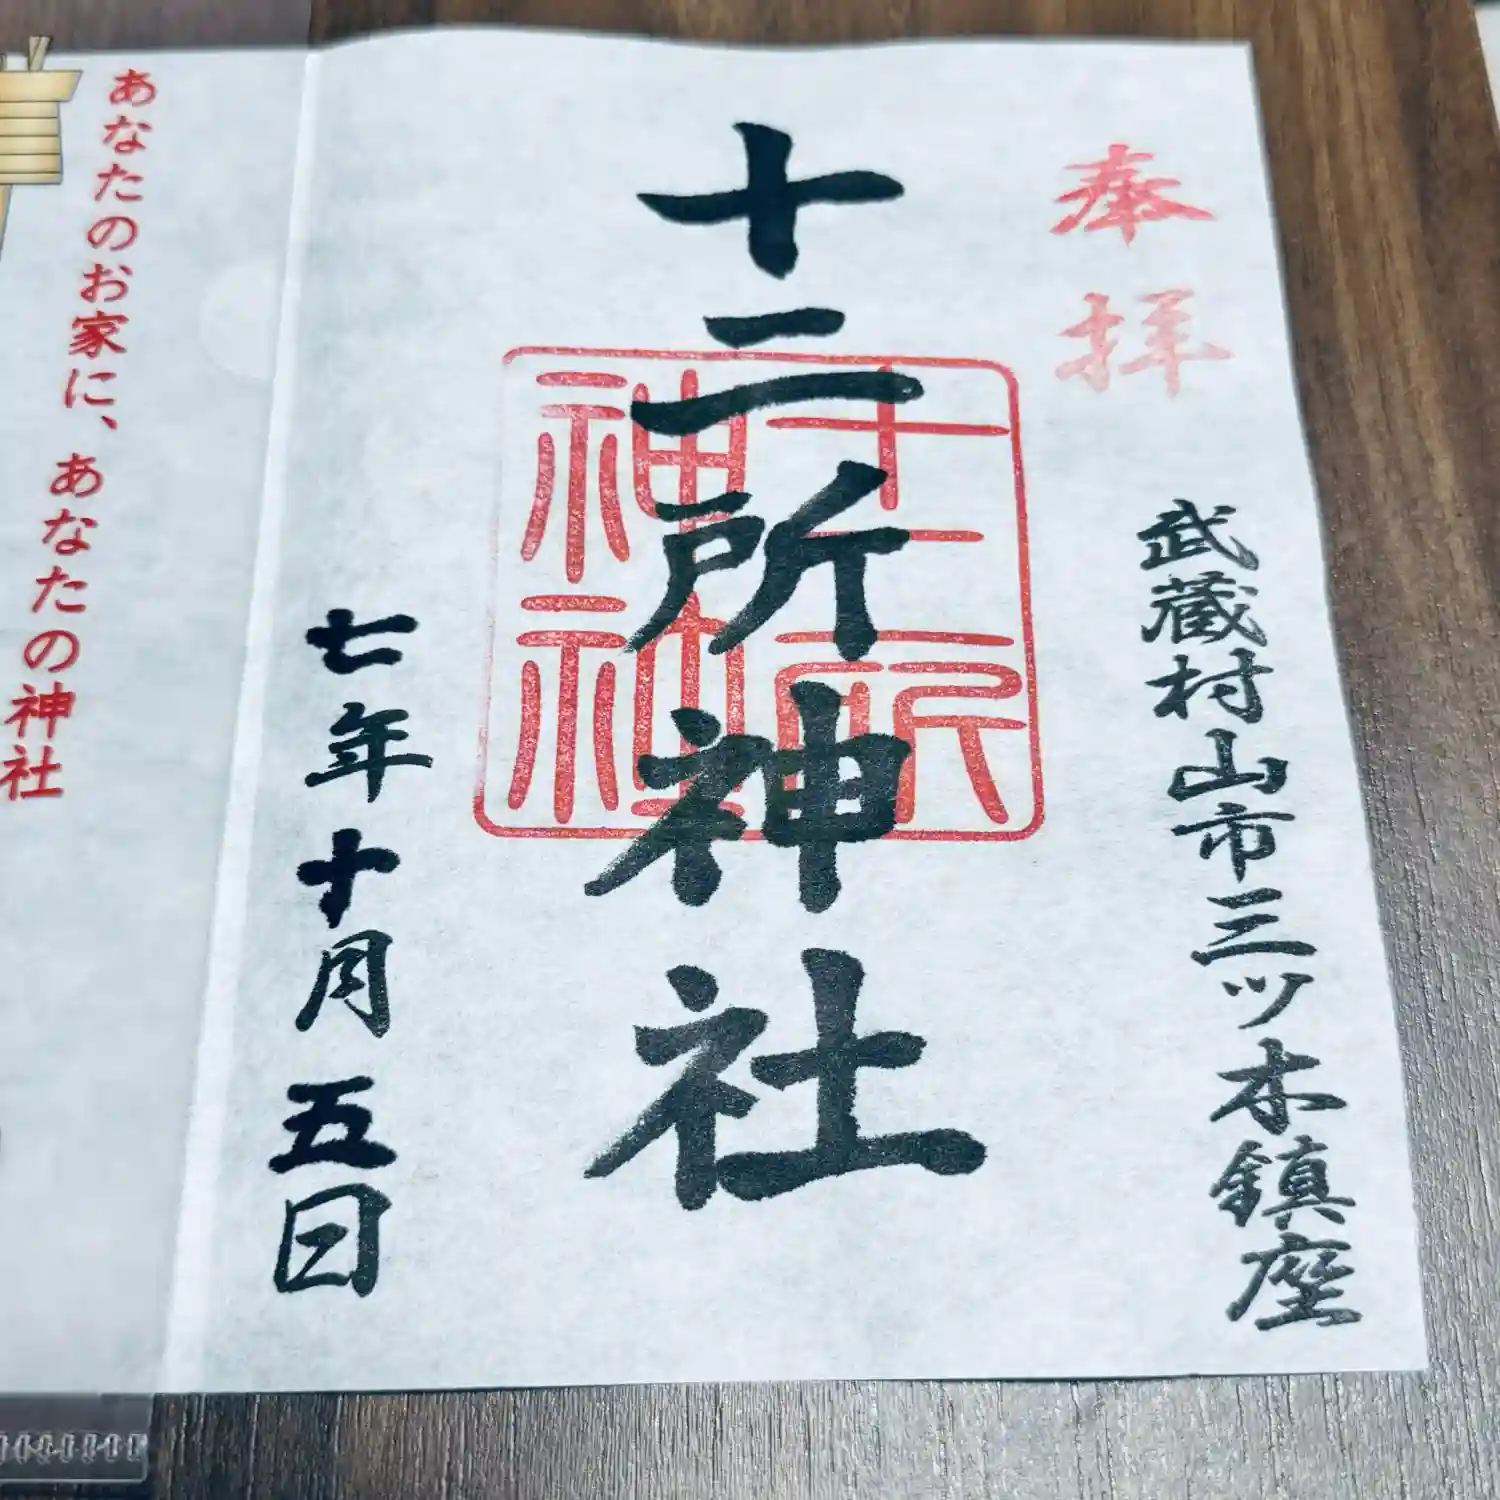 奉拝
武蔵村山市三ツ木鎮座
十二所神社
十二所神社
七年十月五日
あなたのお家に、あなたの神社